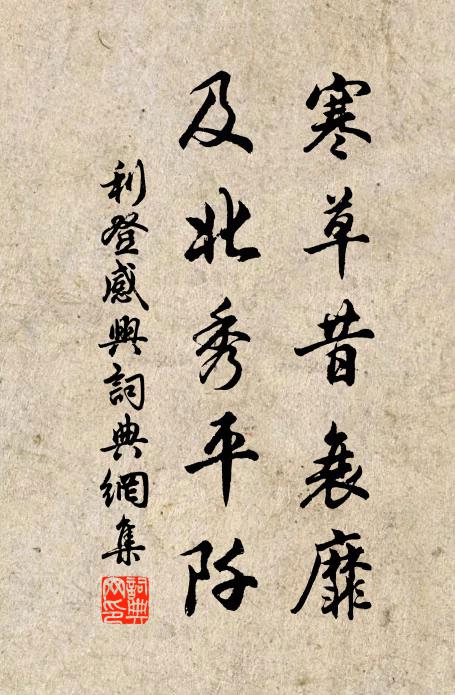 寒草昔衰靡
及此秀平阡
利登感興詞典網集
詞典
网印